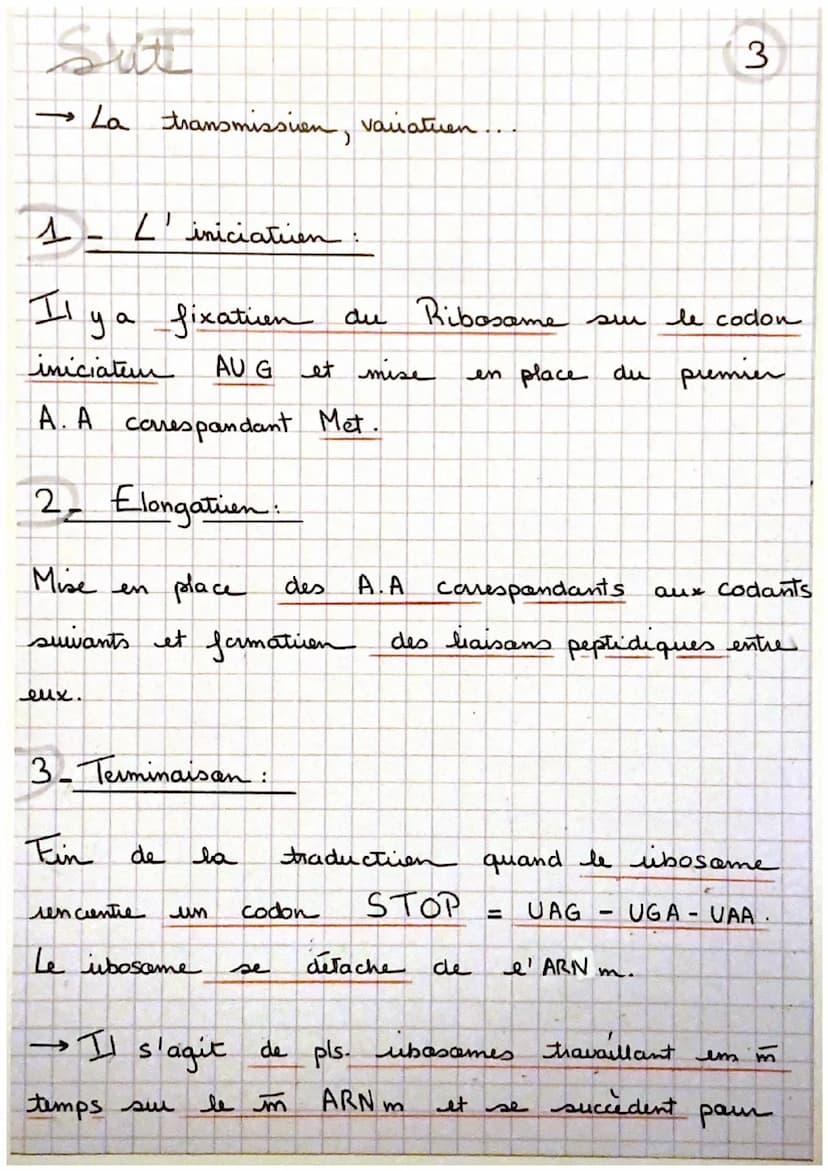 SVT
3
→ La transmission, variation...
1 - L'iniciation :
Il y a fixation du Ribosome sur le codon
iniciateur AUG et mise en place du premier
A.A correspondant Met.
2- Elongation :
Mise en place des A.A correspondants aux codants
suivants et formation des liaisons peptidiques entre
eux.
3- Terminaison :
Fin de la traduction quand le ribosome
rencontre un codon STOP = UAG - UGA - UAA.
Le ribosome se détache de l'ARN m.
→ Il s'agit de pls. ribosomes travaillant em m̄
temps sur le m̄ ARN m et se succèdent pour